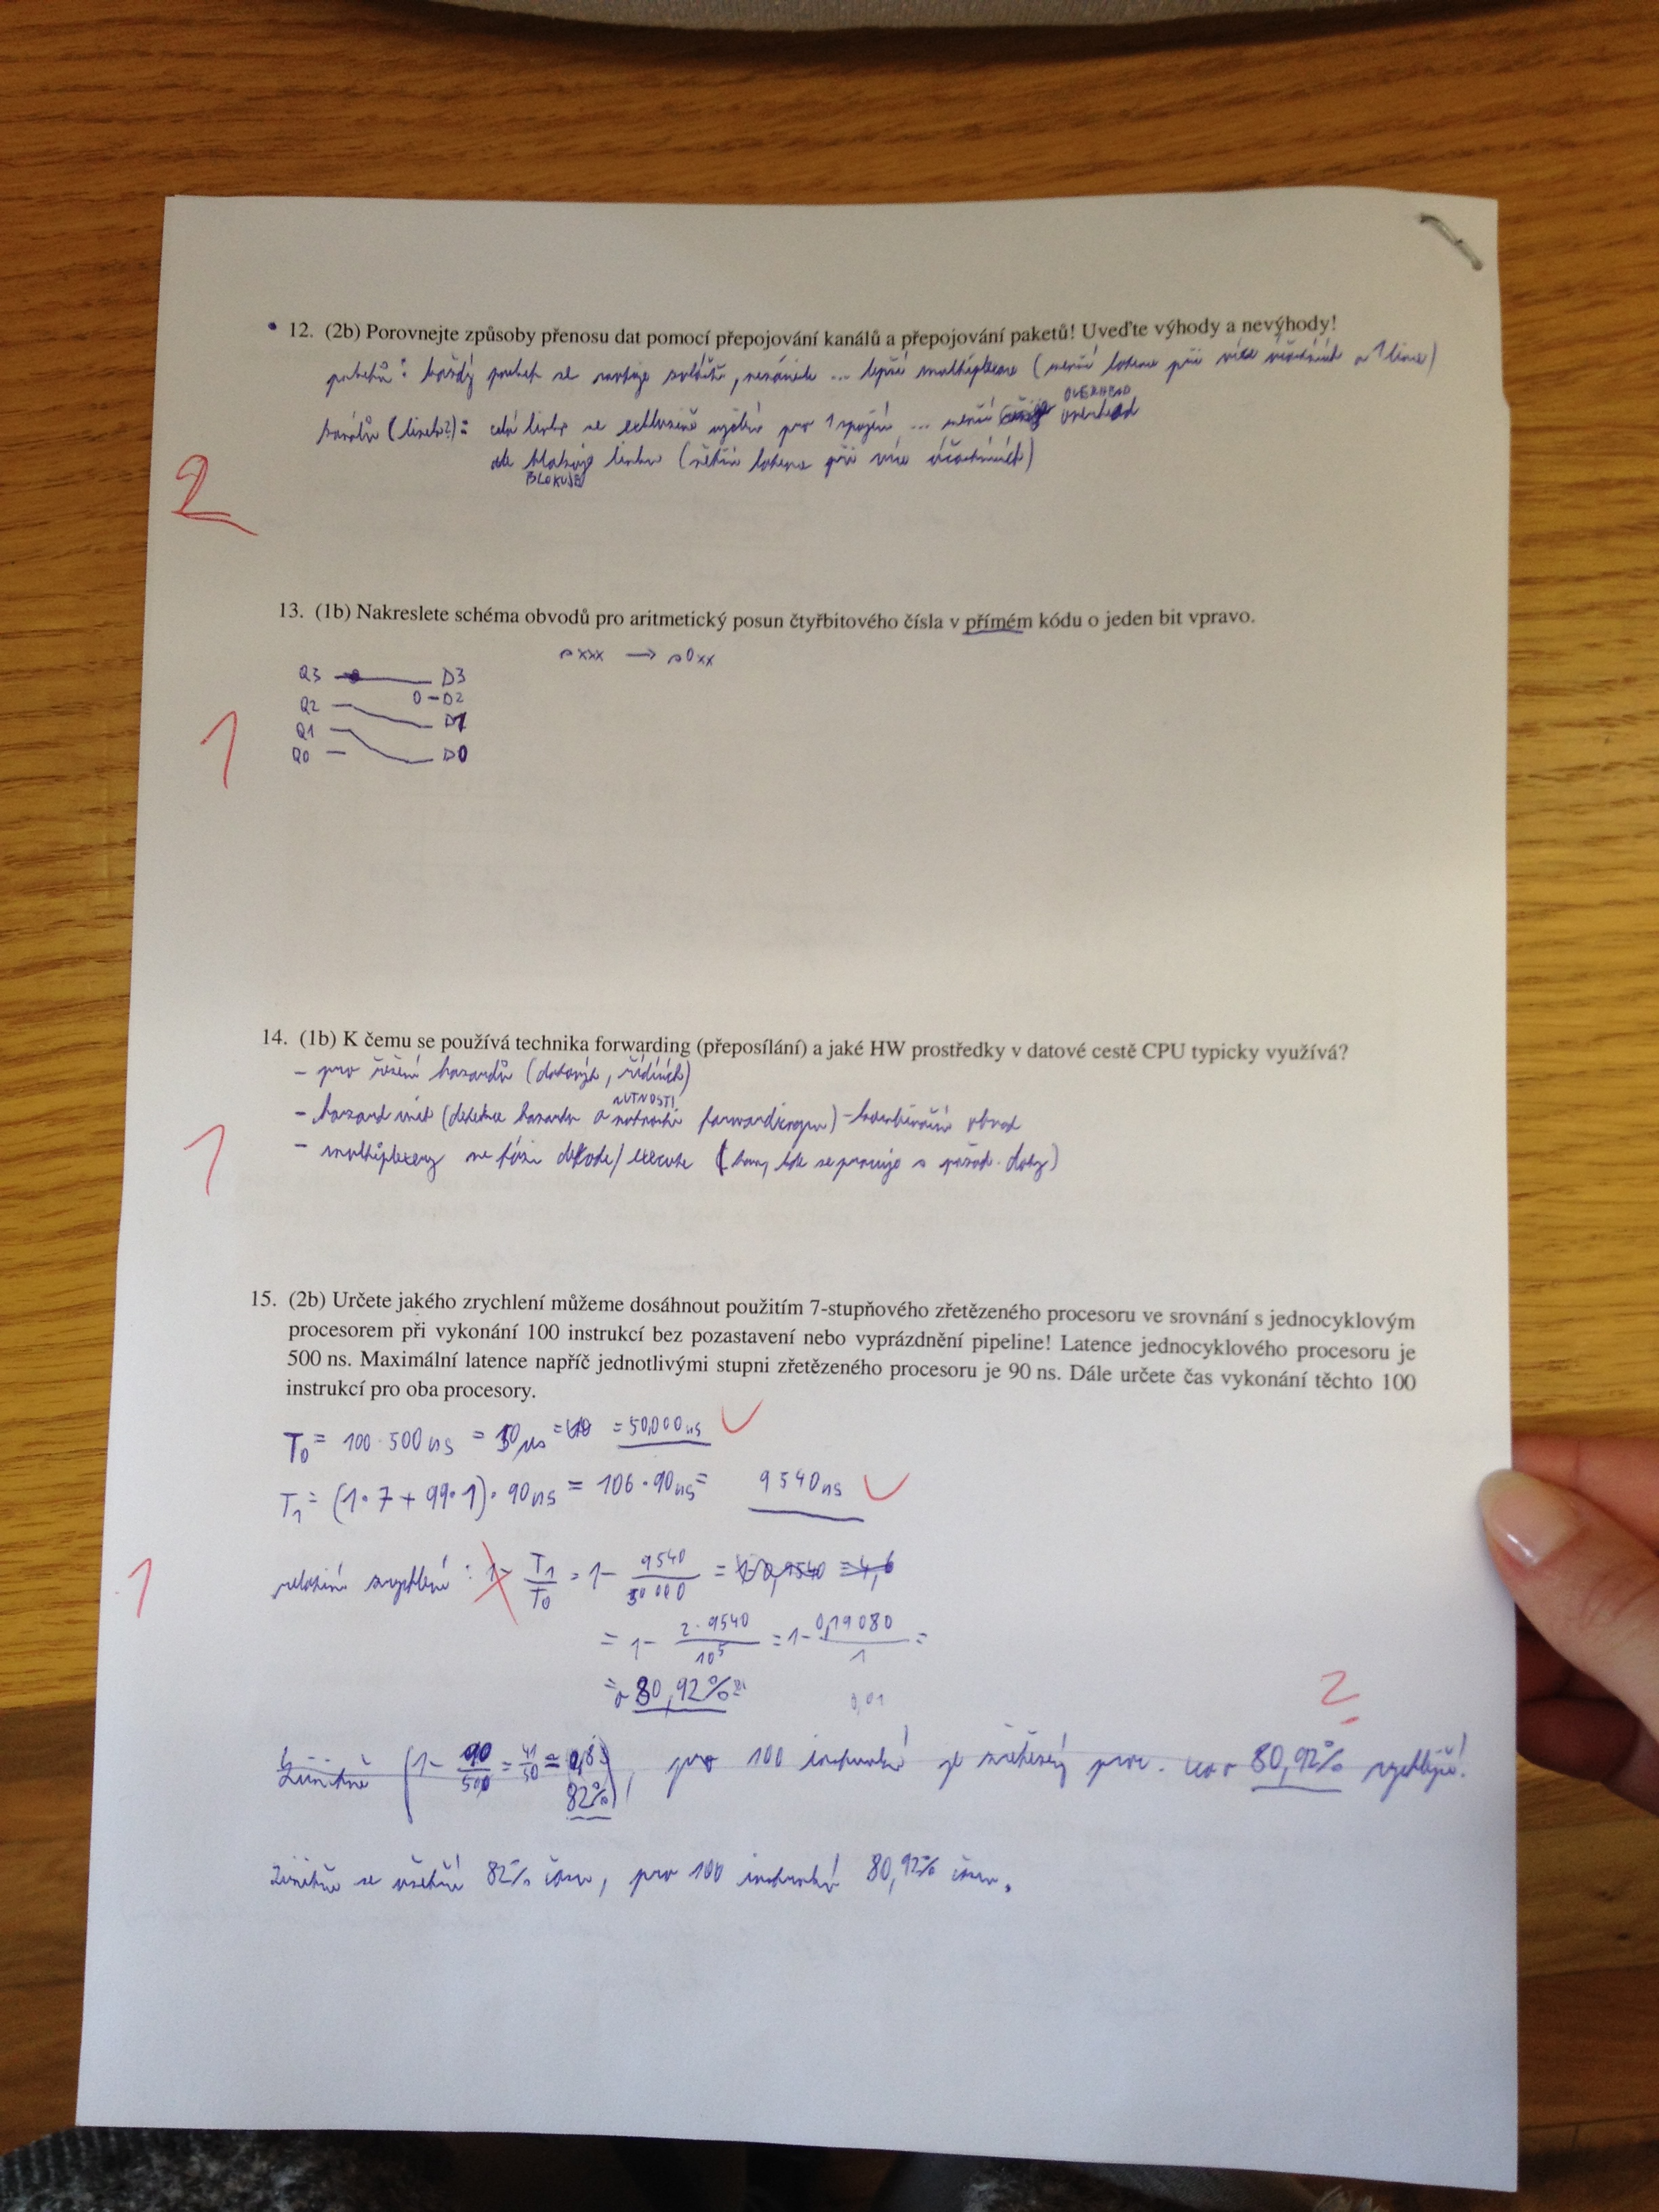 12. (2b) Porovnejte způsoby přenosu dat pomocí přepojování kanálů a přepojování paketů! Uveďte výhody a nevýhody!
paketů: každý paket se routuje zvlášť, nezávisle ... lepší multiplexace (menší latence při více účastnících a 1 lince)
kanálů (linek?): celá linka se exkluzivně vyčlení pro 1 spojení ... menší overhead
OVERHEAD
ale blokuje linku (větší latence při více účastnících)
BLOKUJE
2
13. (1b) Nakreslete schéma obvodů pro aritmetický posun čtyřbitového čísla v přímém kódu o jeden bit vpravo.
sxxx → s0xx
Q3 D3
0 - D2
Q2
D1
Q1
Q0 D0
1
14. (1b) K čemu se používá technika forwarding (přeposílání) a jaké HW prostředky v datové cestě CPU typicky využívá?
- pro řešení hazardů (datových, řídících)
NUTNOSTI
- hazard unit (detekce hazardu a nutnosti forwardingu) - kombinační obvod
- multiplexery ve fázi dekode/execute (tam, kde se pracuje s daty)
1
15. (2b) Určete jakého zrychlení můžeme dosáhnout použitím 7-stupňového zřetězeného procesoru ve srovnání s jednocyklovým
procesorem při vykonání 100 instrukcí bez pozastavení nebo vyprázdnění pipeline! Latence jednocyklového procesoru je
500 ns. Maximální latence napříč jednotlivými stupni zřetězeného procesoru je 90 ns. Dále určete čas vykonání těchto 100
instrukcí pro oba procesory.
T0 = 100·500ns = 50µs = 50,000ns
T1 = (1·7 + 99·1)·90ns = 106·90ns = 9540ns
relativní zrychlení: 1- T1/T0 = 1- 9540/50000
= 1- 2·9540/10^5 = 1- 0,19080/1 =
= 80,92%
0,01
1
2
Limitně (1- 90/500 = 41/50 = 82%), pro 100 instrukcí je zřetězený proc. o 80,92% rychlejší!
Limitně se ušetří 82% času, pro 100 instrukcí 80,92% času.